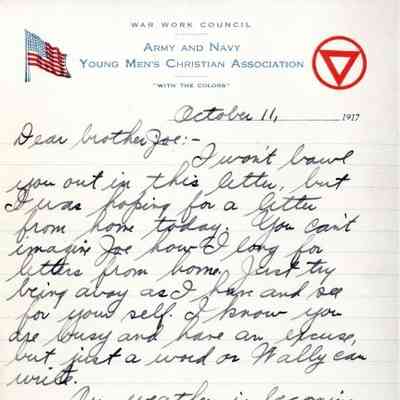 WAR WORK COUNCIL
ARMY AND NAVY
YOUNG MEN'S CHRISTIAN ASSOCIATION
"WITH THE COLORS"
October 11, 1917
Dear brother Joe:-
I won't bawl
you out in this letter, but
I was hoping for a letter
from home today. You can't
imagin Joe how I long for
letters from home. Just try
being away as I have and see
for your self. I know you
are busy and have an excuse,
but just a word or Wally can
write.
Our weather is becoming